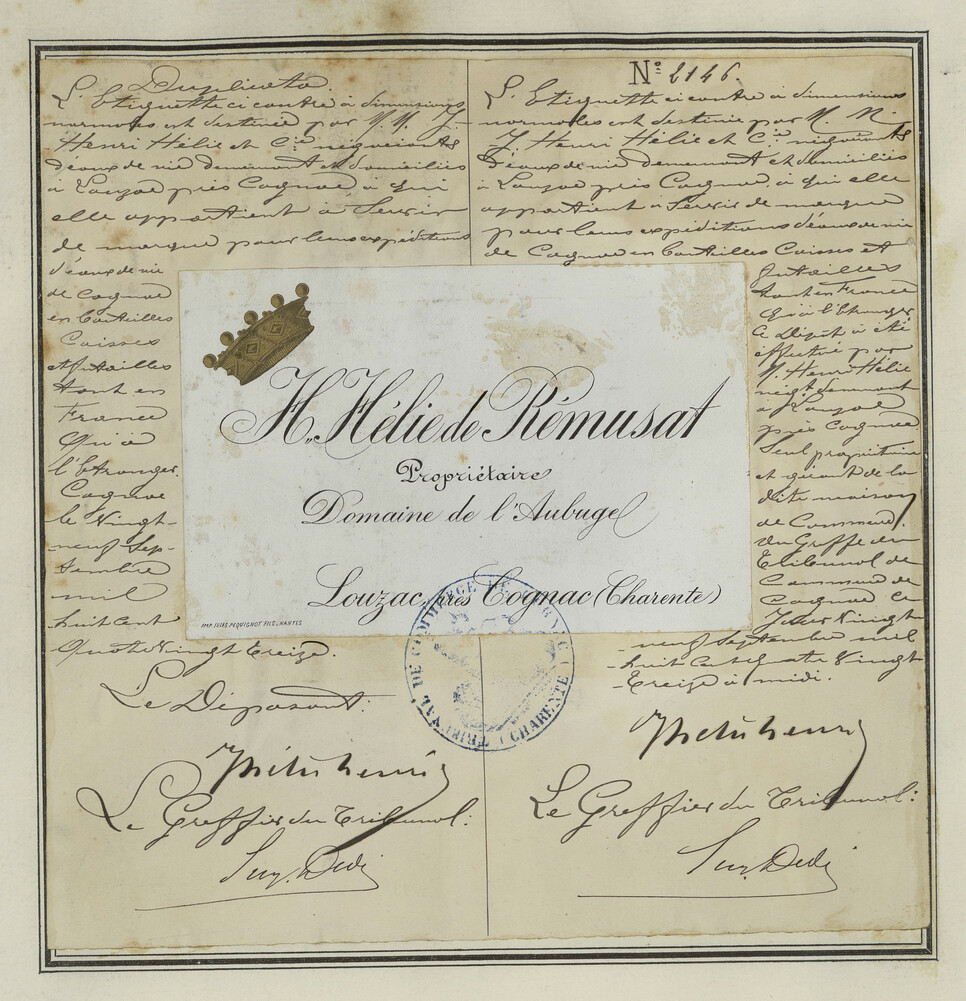 Duplicata.
L'Etiquette ci contre à dimensions
normales est destinée par M. M. J.
Henri Hélie et Cie négociants
d'eaux de vie demeurant et domiciliés
à Louzac près Cognac à qui
elle appartient à Servir
de marque pour leurs expéditions
d'eaux de vie
de Cognac
en bouteilles
Caisses
et futailles
tant en
France
qu'à
l'Etranger.
Cognac
le Vingt-
neuf Sep-
tembre
mil
huit cent
Quatre Vingt treize.
Le Déposant:
Hélie henri
Le Greffier du Tribunal:
No 2146.
L'Etiquette ci contre à dimensions
normales est destinée par M. M.
J. Henri Hélie et Cie négociants
d'eaux de vie demeurant et domiciliés
à Louzac près Cognac, à qui elle
appartient à Servir de marque
pour leurs expéditions d'eaux de vie
de Cognac en bouteilles Caisses et
futailles
tant en France
qu'à l'Etranger
Ce dépôt a été
effectué par
M. Henri Hélie
négt demeurant
à Louzac
près Cognac
Seul propriétaire
et gérant de la
dite maison
de Commerce,
au Greffe du
Tribunal de
Commerce de
Cognac ce
Jour Vingt
neuf Septembre mil
huit cent quatre Vingt
treize à midi.
Hélie henri
Le Greffier du Tribunal:
H. Hélie de Rémusat
Propriétaire
Domaine de l'Aubuge
Louzac, près Cognac (Charente)
IMP. JULES PEQUIGNOT FILS, NANTES
TRIBUNAL DE COMMERCE DE COGNAC (CHARENTE)